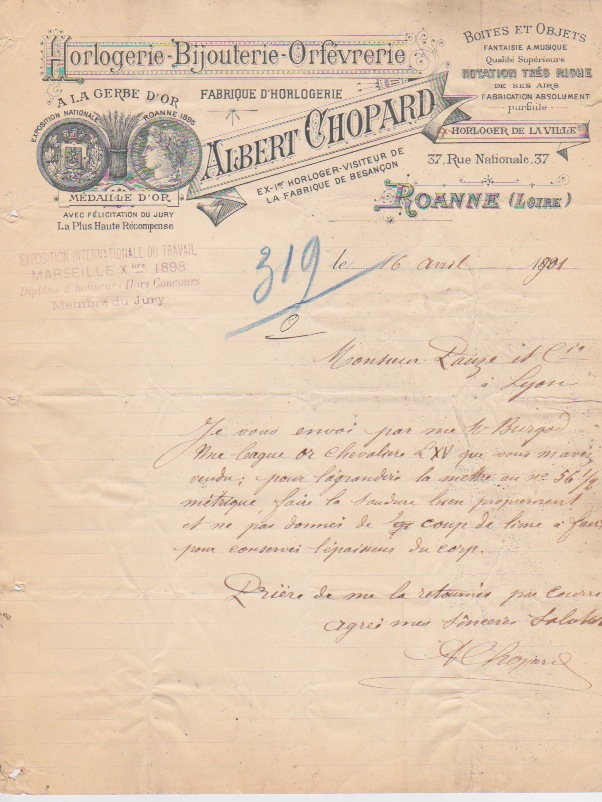 Horlogerie-Bijouterie-Orfèvrerie
A LA GERBE D'OR
FABRIQUE D'HORLOGERIE
EXPOSITION NATIONALE
ROANNE 1895
MÉDAILLE D'OR
AVEC FÉLICITATION DU JURY
La Plus Haute Récompense
ALBERT CHOPARD
EX-1er HORLOGER-VISITEUR DE
LA FABRIQUE DE BESANÇON
BOITES ET OBJETS
FANTAISIE A MUSIQUE
Qualité Supérieure
NOTATION TRÈS RICHE
DE SES AIRS
FABRICATION ABSOLUMENT
parfaite
HORLOGER DE LA VILLE
37, Rue Nationale, 37
ROANNE (LOIRE)
EXPOSITION INTERNATIONALE DU TRAVAIL
MARSEILLE Xbre 1898
Diplôme d'honneur - Hors Concours
Membre du Jury
319
le 16 avril 1901
Monsieur et Cie
à Lyon
Je vous envoi par me
Une bague or chevalière L XV que vous m'avez
vendu; pour l'agrandire la mettre au no 56 1/2
métrique, faire la soudure bien proprement
et ne pas donner de coup de lime à
pour conserver l'épaisseur du corp.
Prière de me la retourner par courri
agreé mes sincères Salutat
A Chopard